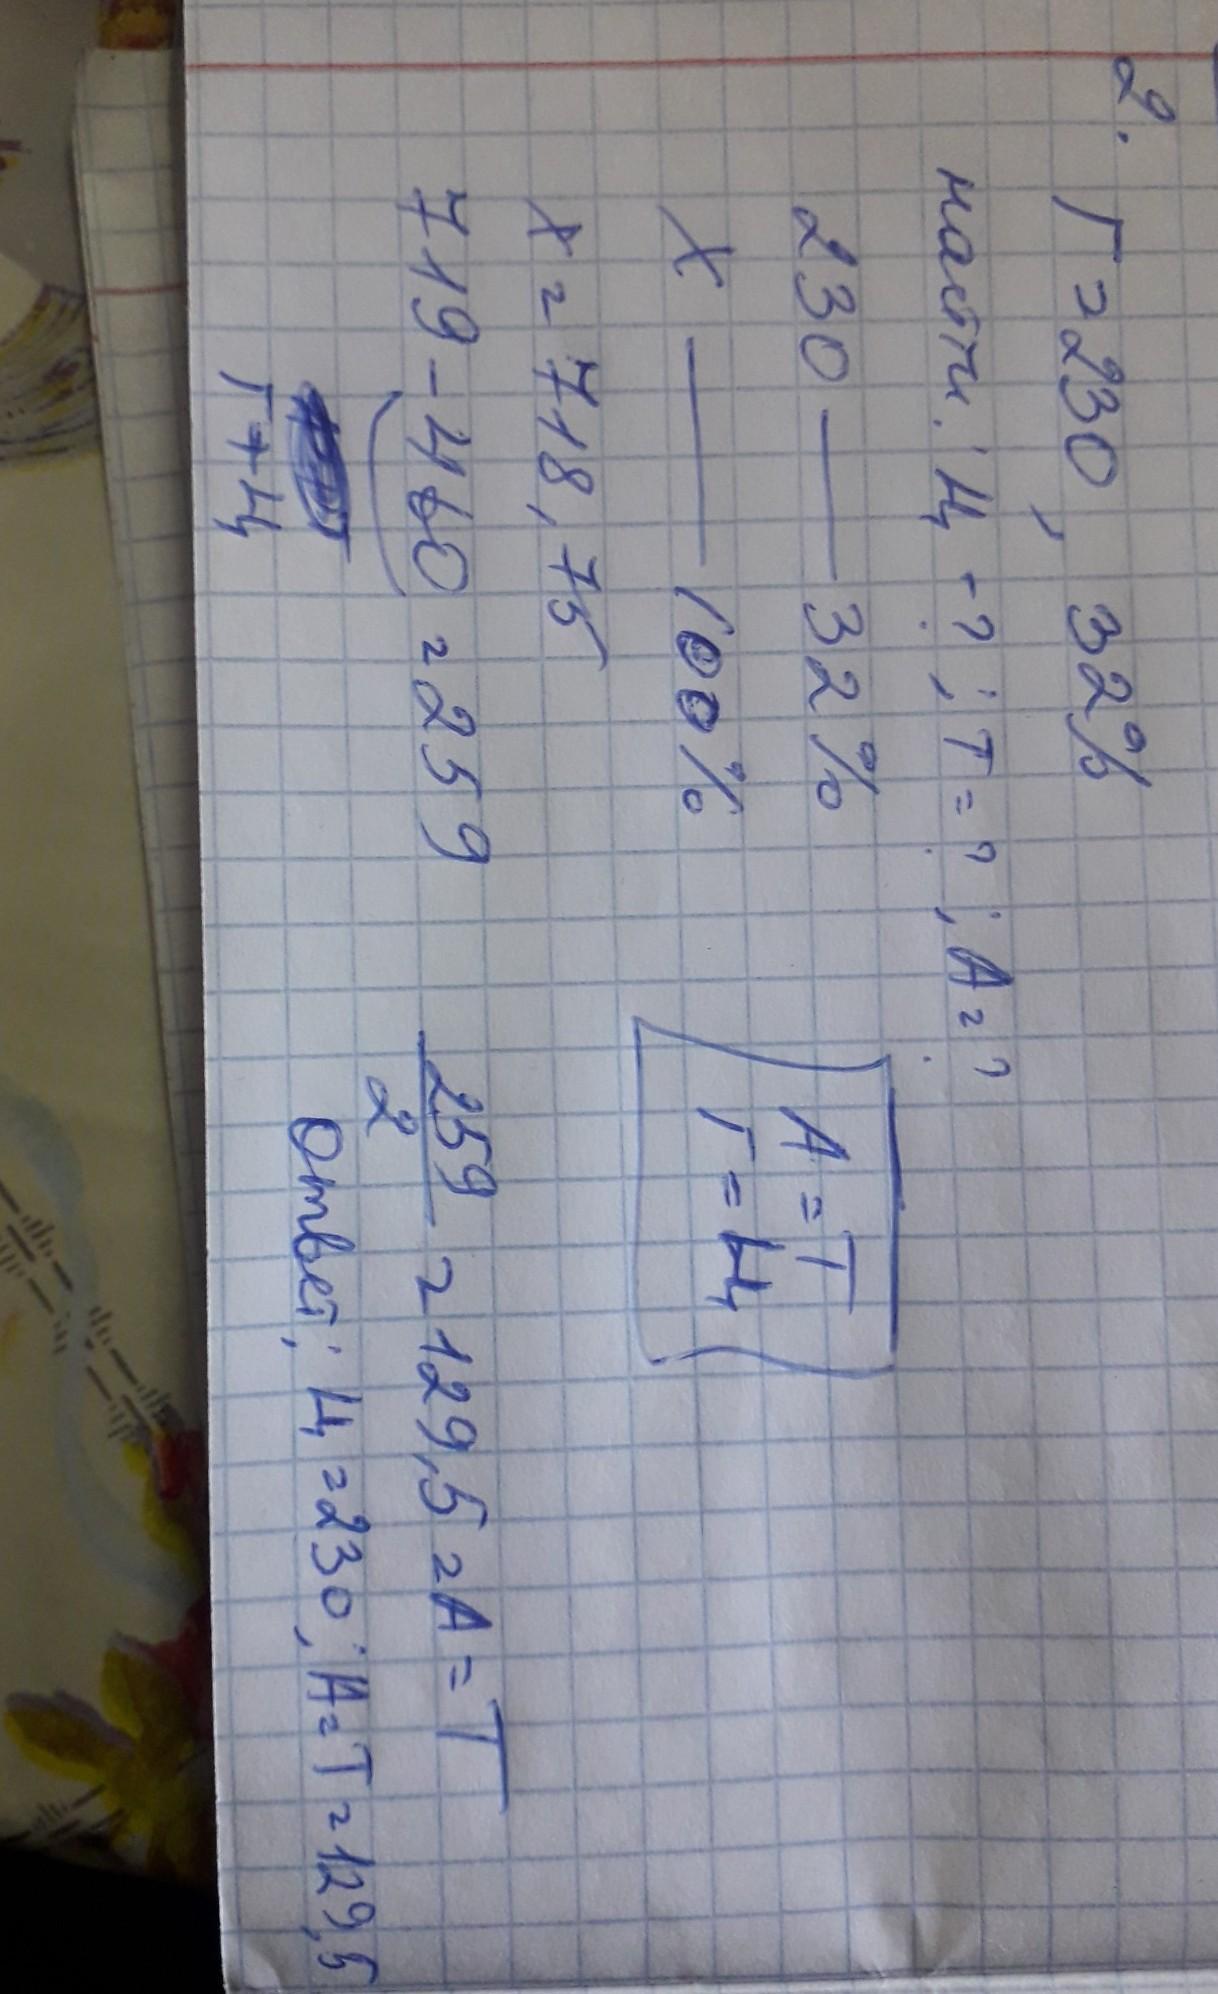 2. Г = 230, 32%
найти: Ц - ?; Т = ?; А = ?
230 — 32%
Х — 100%
А = Т
Г = Ц
Х = 718,75
719 - 460 = 259
Г + Ц
259/2 = 129,5 = А = Т
Ответ: Ц = 230; А = Т = 129,5